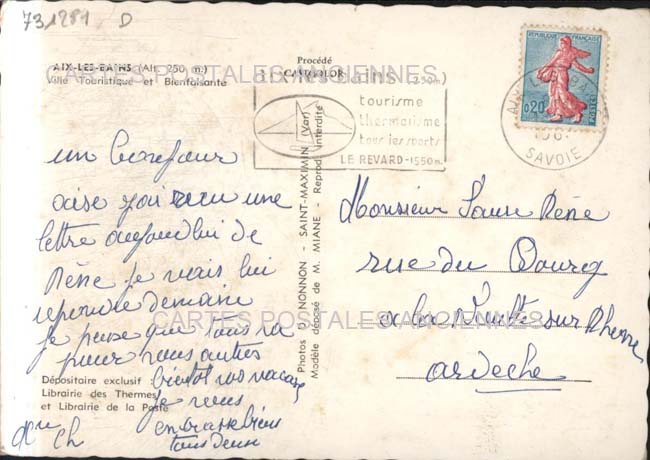 731281 D
AIX-LES-BAINS (Alt. 250 m.)
Ville Touristique et Bienfaisante
CARTES POSTALES ANCIENNES
Procédé
CAPCOLOR
aix les bains (250m)
tourisme
thermalisme
tous les sports
LE REVARD-1550m
REPUBLIQUE FRANÇAISE
0,20
POSTES
AIX LES BAINS
SAVOIE
un bonjour
aise j'ai reçu une
lettre aujourd'hui de
Réne je vais lui
repondre demain
je pense que tous va
pour vous autres
bientot vos vacanse
je vous
embrasse bien
tous deux
Ch
Monsieur Réne
rue du Bourg
a la Voulte sur Rhone
Ardeche
CARTES POSTALES ANCIENNES
Photos J. NONNON - SAINT-MAXIMIN (Var)
Modèle déposé de M. MIANE - Reprod. interdite
Dépositaire exclusif :
Librairie des Thermes
et Librairie de la Poste